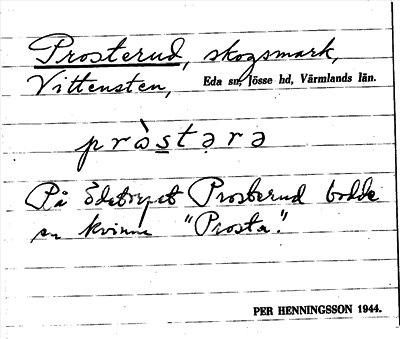 Prosterud, skogsmark,
Vittensten, Eda sn, Jösse hd, Värmlands län.
pròstərə
På ödetorpet Prosterud bodde
en kvinna "Prosta".
PER HENNINGSSON 1944.